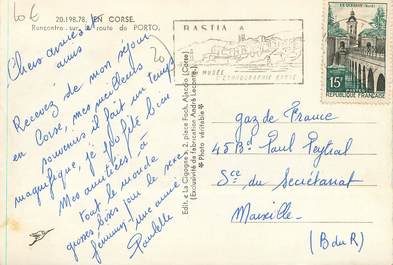 10 €
20.198.78. EN CORSE.
Rencontre sur la route de PORTO.
Chers ami(e)s
amis
Recevez de mon séjour
en Corse, mes meilleurs
souvenirs il fait un temps
magnifique, je
bien
Mes amitiés à
tout le monde
grosses bises
une amie
Paulette
20
BASTIA
MUSÉE
ETHNOGRAPHIE CORSE
LE QUESNOY (Nord)
15F
REPUBLIQUE FRANÇAISE
Edit. « La Cigogne », 2, place Foch, Ajaccio (Corse)
(Exclusivité de fabrication André Leconte)
Photo véritable
gaz de France
45 Bd Paul Peytral
Sce du Secrétariat
Marseille
(B du R)